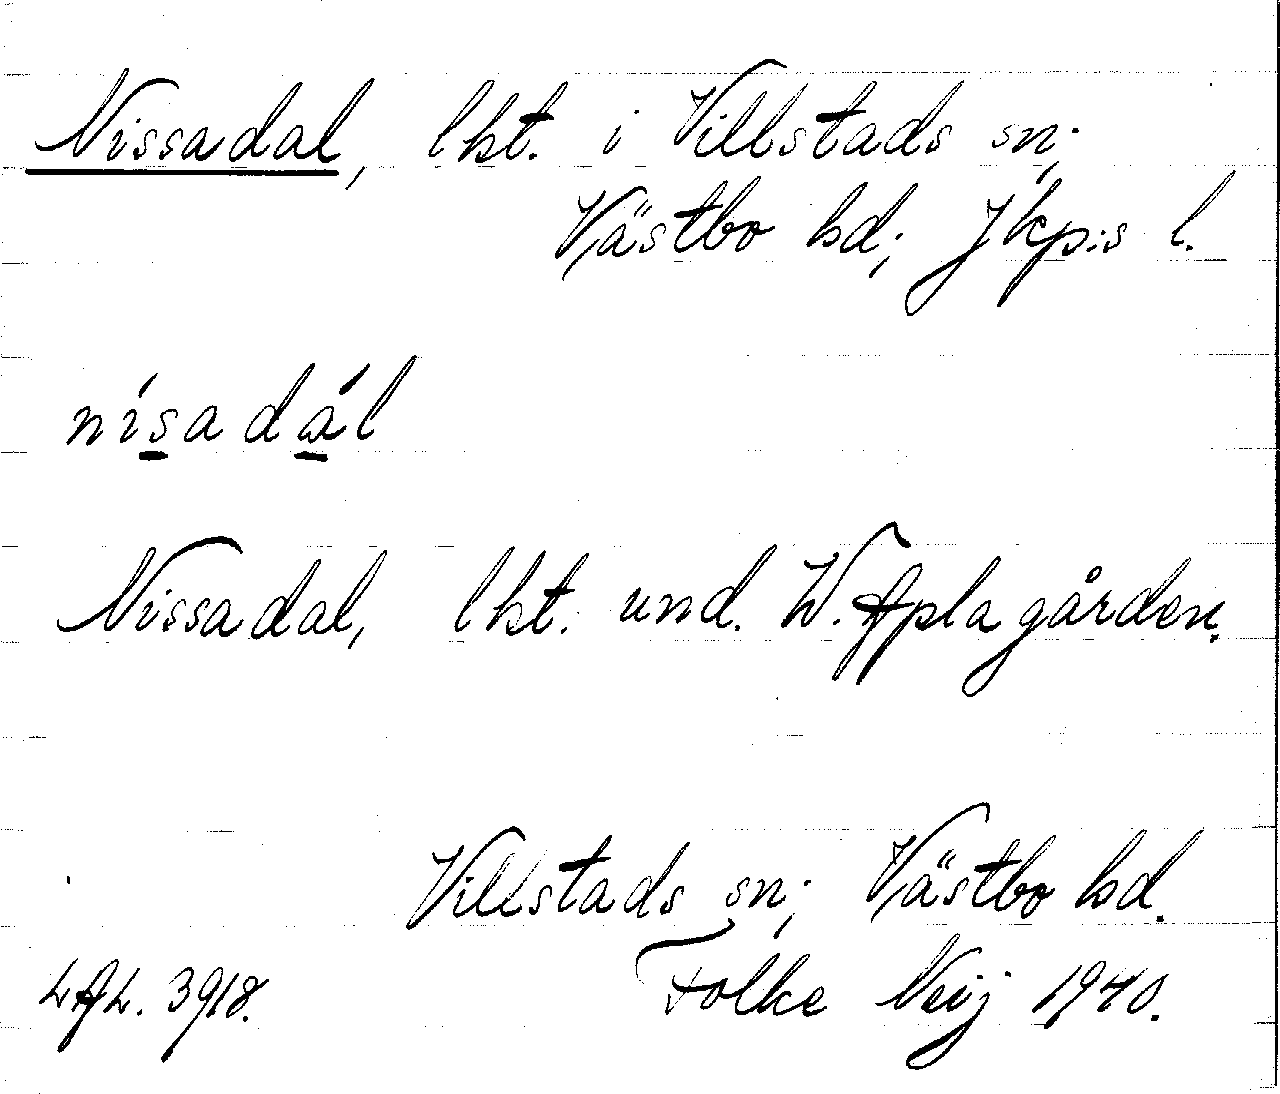 Nissadal, lht. i Villstads sn;
Västbo hd; Jkp:s l.
nísadál
Nissadal, lht. und. W. Aplagården.
Villstads sn; Västbo hd.
LAL. 3918. Folke Neij 1940.